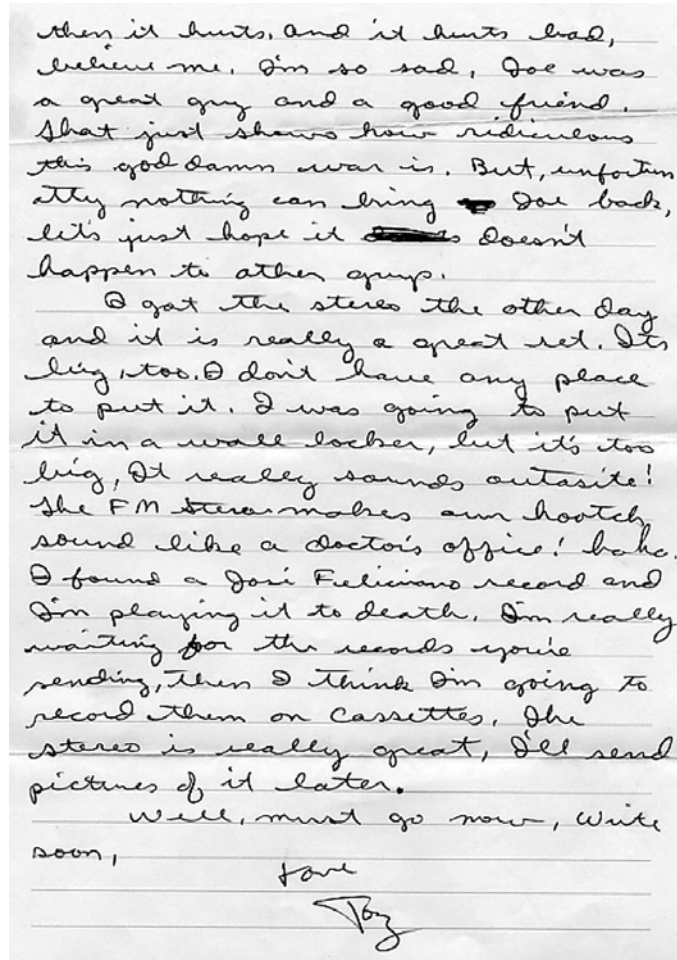 then it hurts. And it hurts bad,
believe me. I'm so sad, Joe was
a great guy and a good friend.
That just shows how ridiculous
this god damn war is. But, unfortun
atly nothing can bring Joe back,
let's just hope it doesn't
happen to other guys.
I got the stereo the other day
and it is really a great set. Its
big, too. I don't have any place
to put it. I was going to put
it in a wall locker, but it's too
big, It really sounds outasite!
The FM Stereo makes our hootch
sound like a doctor's office! haha.
I found a José Feliciano record and
I'm playing it to death. I'm really
waiting for the records you're
sending, then I think I'm going to
record them on cassettes. The
stereo is really great, I'll send
pictures of it later.
Well, must go now, Write
soon,
Love